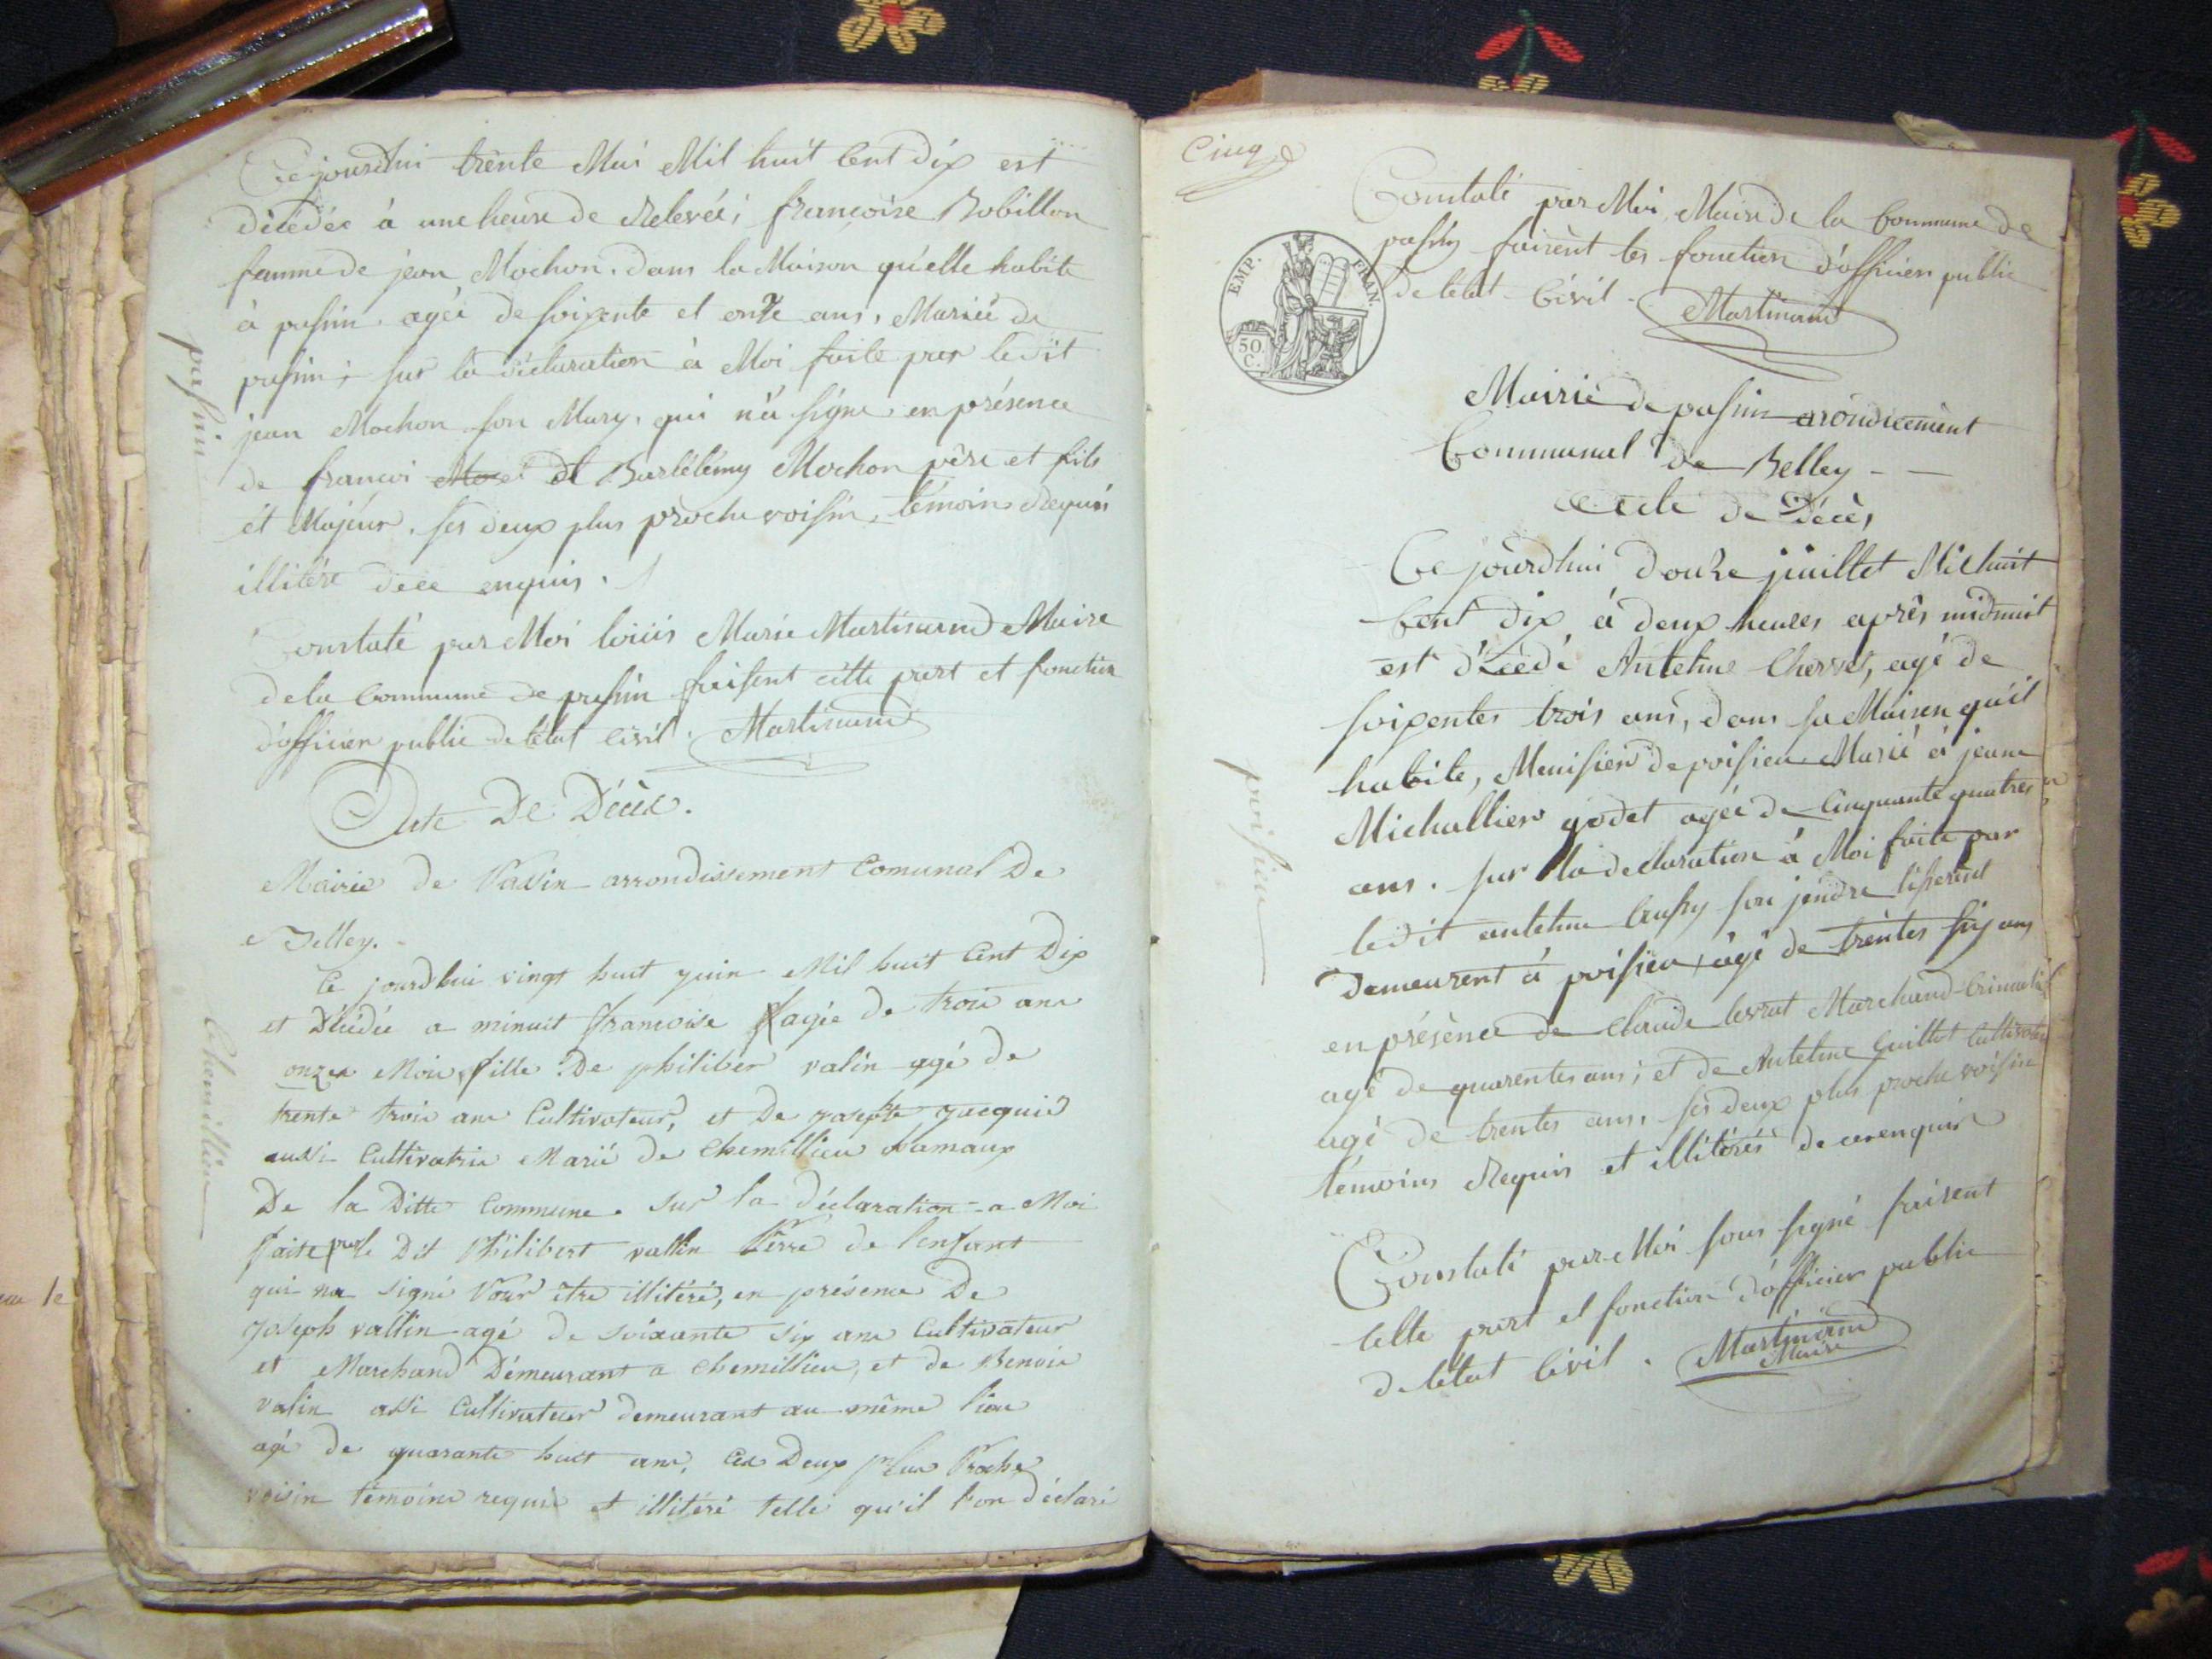 Ce jourdhui trente Mai Mil huit Cent dix est
décédée à une heure de Relevée; francoise Robillon
famme de jean Mochon. dans la Maison qu'elle habite
à passin. agée de soixente et onze ans, Mariée de
passin; sur la déclaration à Moi faite par ledit
jean Mochon son Mary, qui n'a signe en présence
de francoi et Bartélémy Mochon père et fils
ét Majeur, ses deux plus proche voissin, témoins Requis
illitére dece enquis.
Constaté par Moi loüis Marie Martinand Maire
dela Commune de passin faisent cette part et fonction
d'officier public de létat Civil. Martinand
passin
Acte De Décès.
Mairie de Passin arrondissement Comunal De
Belley.
Ce jourdhui vingt huit juin Mil huit Cent Dix
et Décédée a minuit francoise agée de trois ans
onzes Mois, fille De philiber valin agé de
trente trois ans Cultivateur, et De josephte jacquis
aussi Cultivatrice Marié de Chemillieu hamaux
De la Ditte Commune. sur la déclaration a Moi
faite par le Dit Philibert vallin Perre de l'enfant
qui na signé Pour être illitéré, en présence De
joseph vallin agé de soixante six ans Cultivateur
et Marchand Démeurant a Chemillieu, et de Benoit
valin assi Cultivateur demeurant au même lieu
agé de quarante huit ans, Ces Deux plus Proche
voisin témoins requis et illitéré telle qu'il l'on déclaré
Chemillieu
Cinq
EMP. FRAN.
50.
C.
Constaté par Moi, Maire de la Commune de
passin faisent les fonction d'officier public
de létat Civil. Martinand
Mairie de passin arondicement
Communal de Belley
Acte de Décès
Ce jourdhui douze juillet Mil huit
Cent dix à deux heures après midnuit
est décédé Antelme Chervet, agé de
soixentes trois ans, dans sa Maison qu'il
habite, Menisier de poisieu Marié à jeane
Michallier godet agée de Cinquante quatres
ans. sur la declaration à Moi faite par
ledit antelme son jendre
Demeurent à poisieu, agé de trentes six ans
en présence de Claude levrat Marchand
agé de quarentes ans; et de Antelme Guillot Cultivateur
agé de trentes ans, ses deux plus proche voisine
témoins Requis et illitérés de ce enquis
Constaté par Moi sous signé faisent
Cette part et fonction d'officier public
de létat Civil. Martinand
Maire
poisieu